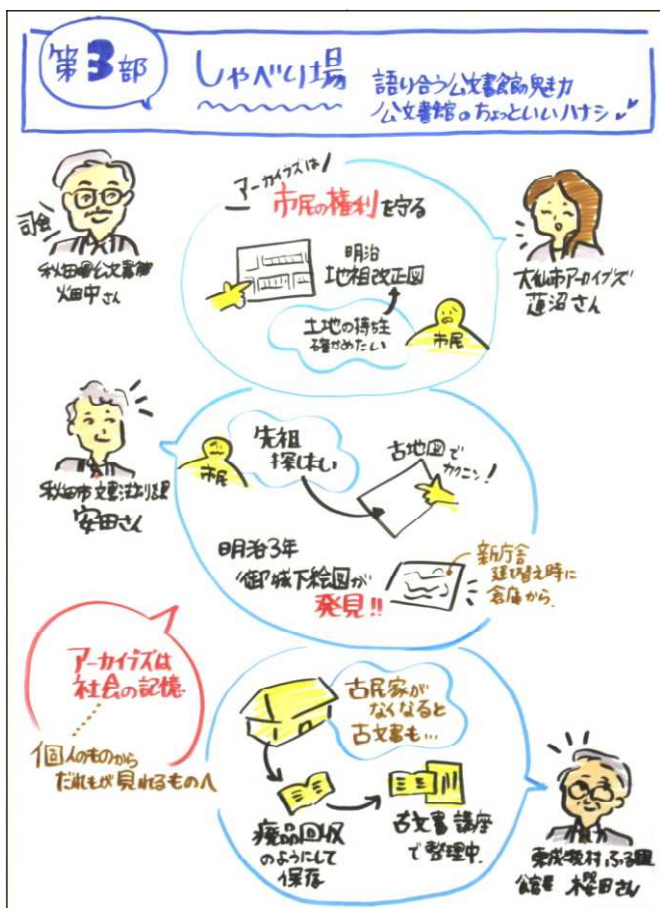 第3部
しゃべり場
語り合う公文書館の魅力
公文書館のちょっといいハナシ
司会
秋田県公文書館
畑中さん
アーカイブズは
市民の権利を守る
明治
地租改正図
土地の持ち主
確かめたい
市民
大仙市アーカイブズ
蓮沼さん
秋田市文書法制課
安田さん
市民
先祖
探したい
古地図で
カクニン!
明治3年
"御城下絵図が
発見!!
新庁舎
建び替え時に
倉庫から
アーカイブズは
社会の記憶
個人のものから
だれもが見れるものへ
古民家が
なくなると
古文書も…
廃品回収
のようにして
保存
古文書講座
で整理中
東成瀬村ふる里
館長 櫻田さん